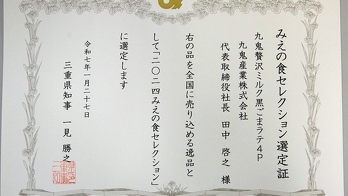 みえの食セレクション選定証
九鬼贅沢ミルク黒ごまラテ4P
九鬼産業株式会社
代表取締役社長 田中 啓之 様
右の品を全国に売り込める逸品と
して「二〇二四みえの食セレクション」
に選定します
令和七年一月二十七日
三重県知事 一見 勝之